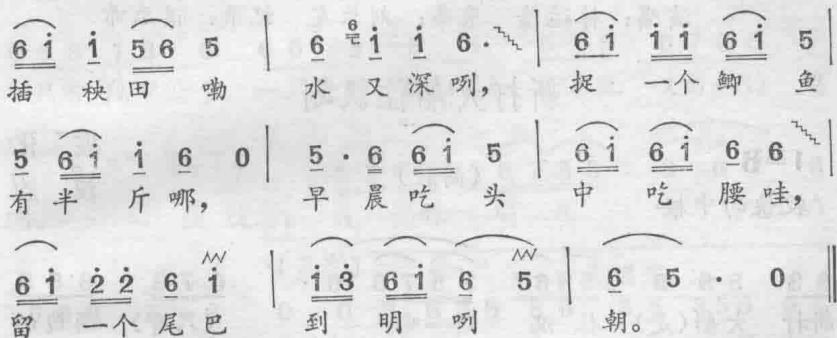 6 i i 5 6 5 | 6 6 i i 6 · | 6 i i i 6 i 5
插 秧 田 嘞 水 又 深 咧, 捉 一个 鲫 鱼
5 6 i i 6 0 | 5 · 6 6 i 5 | 6 i 6 i 6 6
有 半 斤 哪, 早 晨 吃 头 中 吃 腰 哇,
6 i 2 2 6 i | i 3 6 i 6 5 | 6 5 · 0
留 一个 尾 巴 到 明 咧 朝。